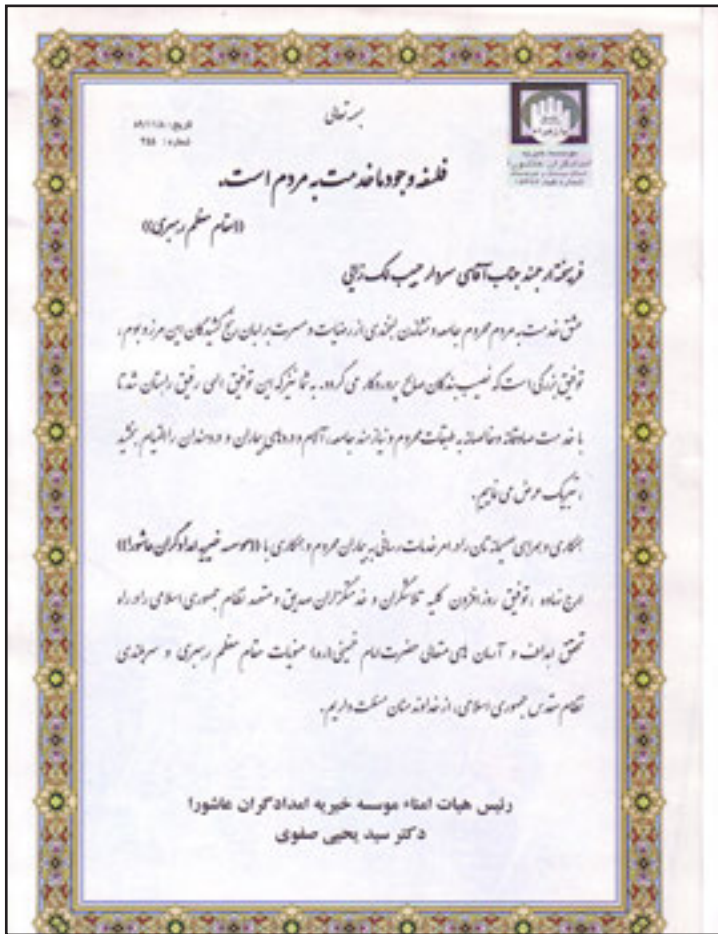 بسمه تعالی
تاریخ: ۸۹/۱۱/۸
شماره: ۲۸۸
امدادگران عاشورا
فلسفه وجود ما خدمت به مردم است.
((مقام معظم رهبری))
فرهیخته ارجمند جناب آقای سردار حبیب لک زایی
عشق خدمت به مردم محروم جامعه و نشاندن لبخندی از رضایت و مسرت بر لبان رنج کشیدگان این مرز و بوم ،
توفیق بزرگی است که نصیب بندگان صالح پروردگار می گردد. به شما نیز که این توفیق الهی رفیق راهتان شد تا
با خدمت صادقانه و خالصانه به طبقات محروم و نیازمند جامعه، آلام و دردهای بیماران و دردمندان را التیام بخشید
، تبریک عرض می نماییم.
همکاری و همراهی صمیمانه تان را در امر خدمات رسانی به بیماران محروم و همکاری با ((موسسه خیریه امدادگران عاشورا))
ارج نهاده ، توفیق روز افزون کلیه تلاشگران و خدمتگزاران صدیق و متعهد نظام جمهوری اسلامی را در راه
تحقق اهداف و آرمان های متعالی حضرت امام خمینی (ره) منویات مقام معظم رهبری و سربلندی
نظام مقدس جمهوری اسلامی، از خداوند منان مسئلت داریم.
رئیس هیات امناء موسسه خیریه امدادگران عاشورا
دکتر سید یحیی صفوی